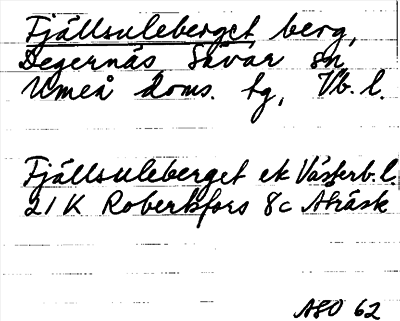 Fjällsuleberget berg,
Degernäs Sävar sn
Umeå doms. tg, Vb. l.
Fjällsuleberget ek Västerb. l.
21 K Robertsfors 8c Åträsk
ASO 62